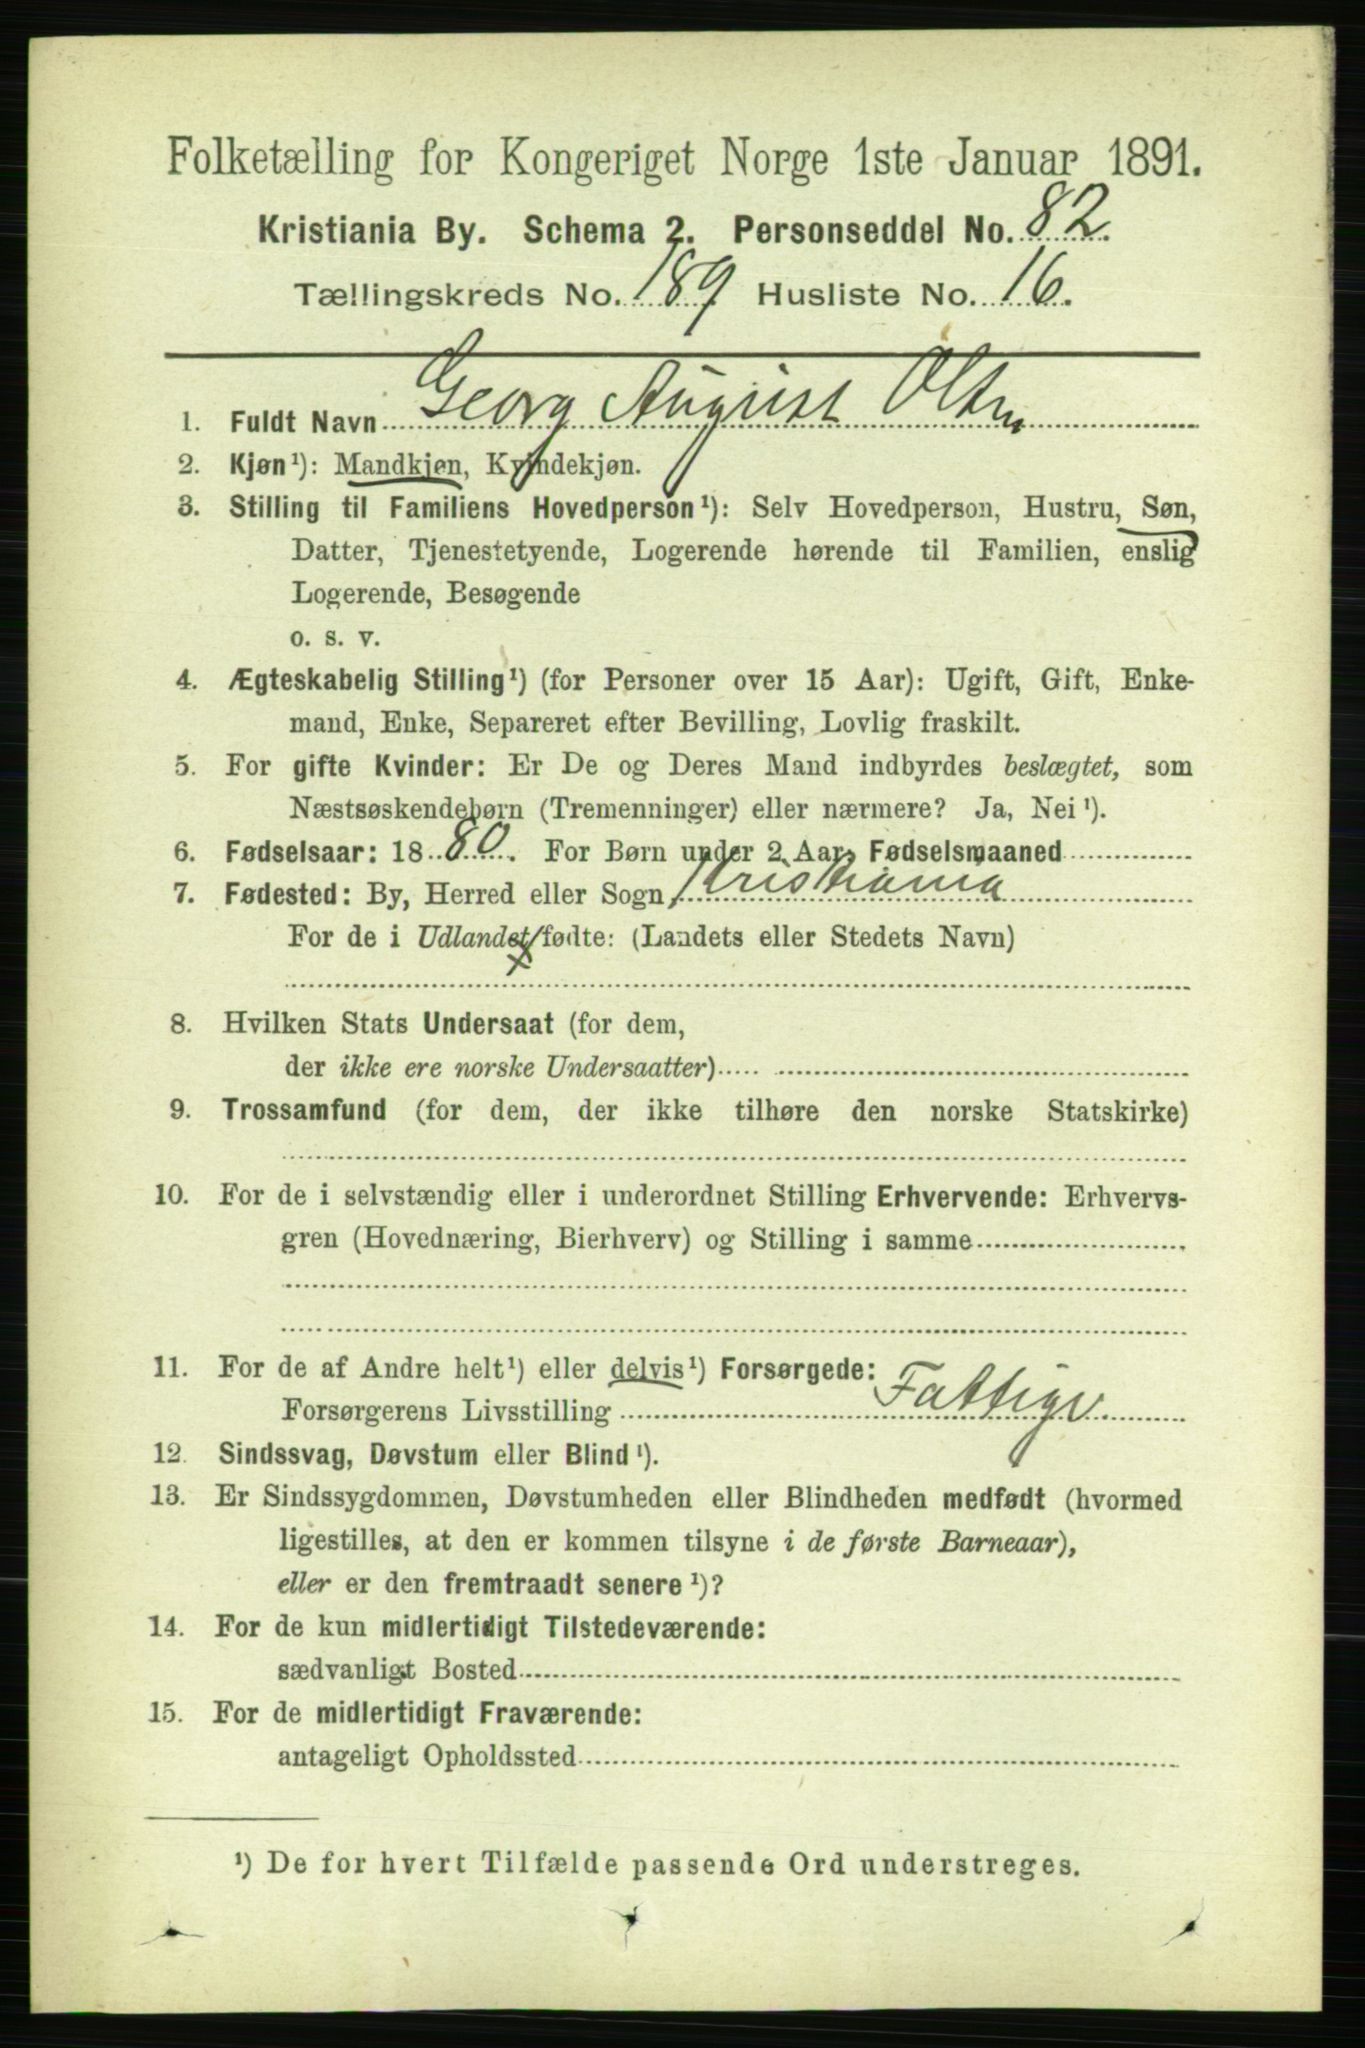 Folketælling for Kongeriget Norge 1ste Januar 1891.
Kristiania By. Schema 2. Personseddel No. 82.
Tællingskreds No. 189 Husliste No. 16.
1. Fuldt Navn Georg August Olsen
2. Kjøn¹): Mandkjøn, Kvindekjøn.
3. Stilling til Familiens Hovedperson¹): Selv Hovedperson, Hustru, Søn,
Datter, Tjenestetyende, Logerende hørende til Familien, enslig
Logerende, Besøgende
o. s. v.
4. Ægteskabelig Stilling¹) (for Personer over 15 Aar): Ugift, Gift, Enke-
mand, Enke, Separeret efter Bevilling, Lovlig fraskilt.
5. For gifte Kvinder: Er De og Deres Mand indbyrdes beslægtet, som
Næstsøskendebørn (Tremenninger) eller nærmere? Ja, Nei¹).
6. Fødselsaar: 1880. For Børn under 2 Aar, Fødselsmaaned
7. Fødested: By, Herred eller Sogn Kristiania
For de i Udlandet fødte: (Landets eller Stedets Navn)
8. Hvilken Stats Undersaat (for dem,
der ikke ere norske Undersaatter)
9. Trossamfund (for dem, der ikke tilhøre den norske Statskirke)
10. For de i selvstændig eller i underordnet Stilling Erhvervende: Erhvervs-
gren (Hovednæring, Bierhverv) og Stilling i samme
11. For de af Andre helt¹) eller delvis¹) Forsørgede:
Forsørgerens Livsstilling Fattigv.
12. Sindssvag, Døvstum eller Blind¹).
13. Er Sindssygdommen, Døvstumheden eller Blindheden medfødt (hvormed
ligestilles, at den er kommen tilsyne i de første Barneaar),
eller er den fremtraadt senere¹)?
14. For de kun midlertidigt Tilstedeværende:
sædvanligt Bosted
15. For de midlertidigt Fraværende:
antageligt Opholdssted
¹) De for hvert Tilfælde passende Ord understreges.